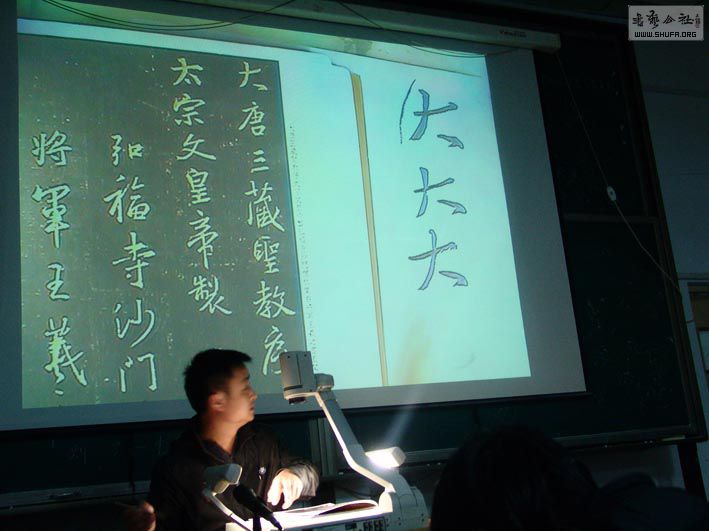 大唐三藏聖教序
太宗文皇帝製
弘福寺沙門
將軍王羲
大大大
書藝公社
WWW.SHUFA.ORG